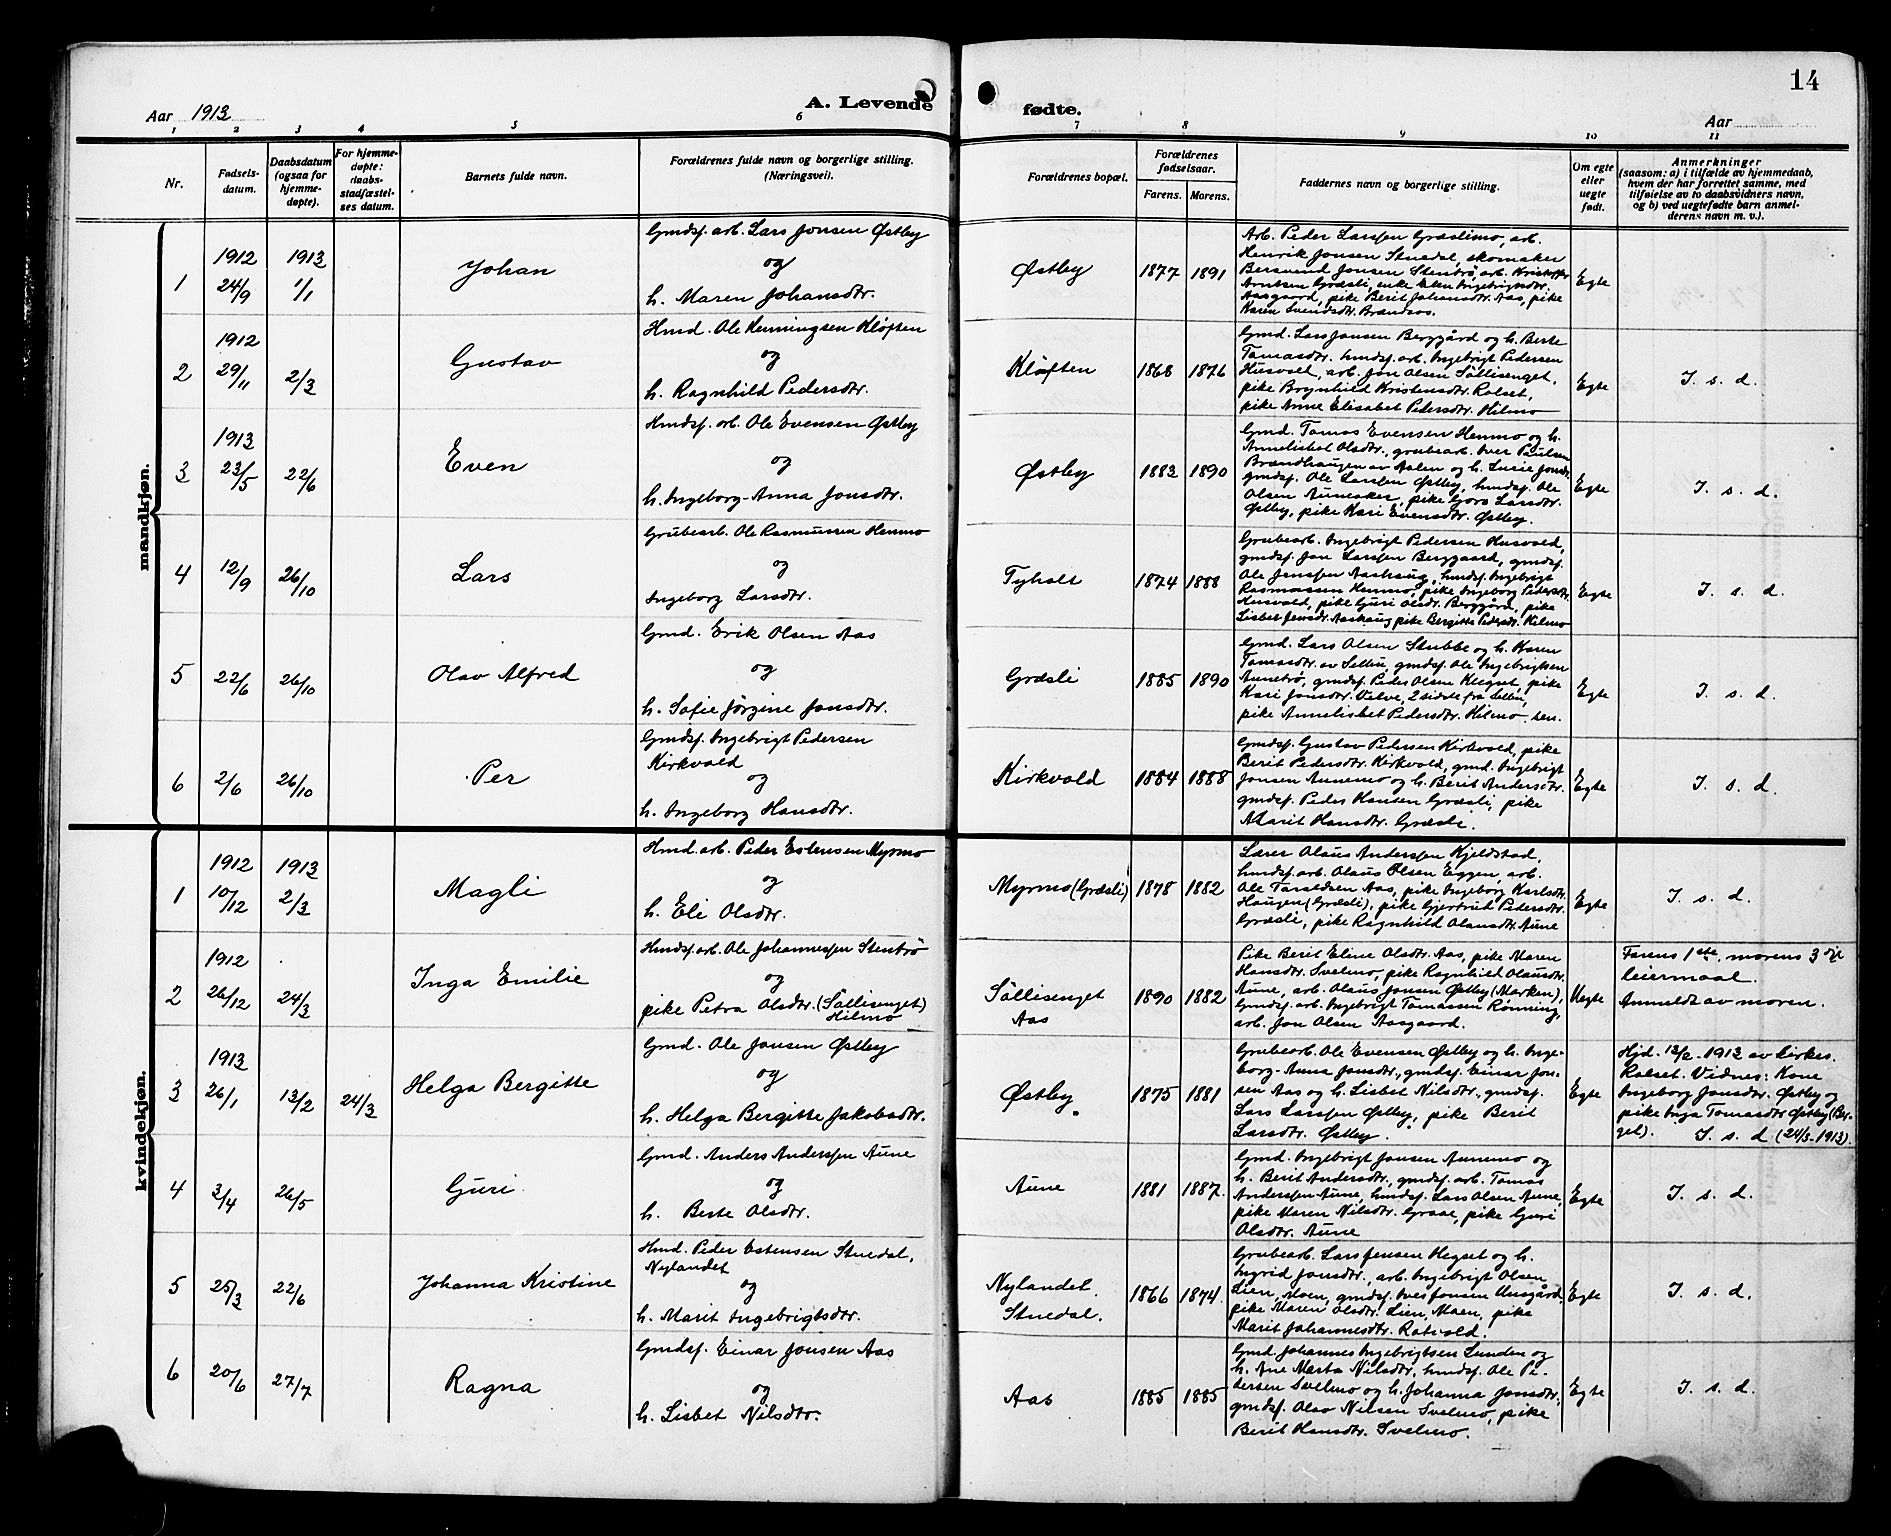 14
Aar 1913
A. Levende fødte.
Aar
1 2 3 4 5 6 7 8 9 10 11
Nr.
Fødsels-
datum.
Daabsdatum
(ogsaa for
hjemme-
døpte).
For hjemme-
døpte:
daabs-
stadfæstel-
ses datum.
Barnets fulde navn.
Forældrenes fulde navn og borgerlige stilling.
(Næringsvei).
Forældrenes bopæl.
Forældrenes
fødselsaar.
Farens. Morens.
Faddernes navn og borgerlige stilling.
Om egte
eller
uegte
født.
Anmerkninger
(saasom: a) i tilfælde av hjemmedaab,
hvem der har forrettet samme, med
tilføielse av to daabsvidners navn,
og b) ved uegtefødte barn anmel-
derens navn m. v.).
mandkjøn.
1
1912
24/9
1913
1/1
Johan
Gmdsf. arb. Lars Jonsen Østby
og
h. Maren Johansdtr.
Østby
1877 1891
Arb. Peder Larssen Græslimo, arb.
Henrik Jonsen Stuedal, skomaker
Bersvend Jonsen Stentrø, arb. Kristoffer
Arntsen Græsli, enke Elen Ingebrigtsdtr.
Aasgaard, pike Berit Johansdtr. Aas, pike
Karen Svendsdtr. Brændaas.
Egte
2
1912
29/11
2/3
Gustav
Hmd. Ole Henningsen Kløften
og
h. Ragnhild Pedersdtr.
Kløften
1868 1876
Gmd. Lars Jonsen Berggård og h. Berte
Tomasdtr. hmdsf. arb. Ingebrigt Pedersen
Husvold, arb. Jon Olsen Søllisenget,
pike Brynhild Kristensdtr. Rolset,
pike Anne Elisabet Pedersdtr. Hilmo
Egte
I. s. d.
3
1913
23/5
22/6
Even
Hmdsf. arb. Ole Evensen Østby
og
h. Ingeborg-Anna Jonsdtr.
Østby
1883 1890
Gmd. Tomas Evensen Hemmo og h.
Annelisbet Olsdtr., grubearb. Iver Paulsen
Brændhaugen av Aalen og h. Lusie Jonsdtr.
gmdsf. Ole Larssen Østby, hmdsf. Ole
Olsen Auneaker, pike Goro Larsdtr.
Østby, pike Kari Evensdtr. Østby.
Egte
I. s. d.
4
12/9
26/10
Lars
Grubearb. Ole Rasmussen Hemmo
og
Ingeborg Larsdtr.
Tyholt
1874 1888
Grubearb. Ingebrigt Pedersen Husvold,
gmdsf. Jon Larssen Berggaard, gmdsf.
Ole Jenssen Aashaug, hmdsf. Ingebrigt
Rasmussen Hemmo, pike Ingeborg Pedersdtr.
Husvold, pike Guri Olsdtr. Berggård, pike
Lisbet Jensdtr. Aashaug pike Bergitte Pedersdtr. Hilmo
Egte
I. s. d.
5
22/6
26/10
Olav Alfred
Gmd. Erik Olsen Aas
og
h. Sofie Jørgine Jonsdtr.
Græsli
1885 1890
Gmd. Lars Olsen Stubbe og h. Karen
Tomasdtr. av Selbu, gmdsf. Ole Ingebrigtsen
Aunetrø, gmdsf. Peder Olsen Hegset, pike
Kari Jonsdtr. Velve, 2 sidste fra Selbu,
pike Annelisbet Pedersdtr. Hilmo sen.
Egte
I. s. d.
6
2/6
26/10
Per
Gmdsf. Ingebrigt Pedersen
Kirkvold
og
h. Ingeborg Hansdtr.
Kirkvold
1884 1888
Gmdsf. Gustav Pedersen Kirkvold, pike
Berit Pedersdtr. Kirkvold, gmd. Ingebrigt
Jonsen Aunemo og h. Berit Andersdtr.
gmdsf. Peder Hansen Græsli, pike
Marit Hansdtr. Græsli.
Egte
I. s. d.
kvindekjøn.
1
1912
10/12
1913
2/3
Magli
Hmd. arb. Peder Estensen Myrmo
og
h. Eli Olsdtr.
Myrmo (Græsli)
1878 1882
Lærer Olaus Anderssen Kjeldstad,
hmdsf. arb. Olaus Olsen Eggen, arb.
Ole Taraldsen Aas, pike Ingeborg Karlsdtr.
Haugen (Græsli), pike Gjertrud Pedersdtr.
Græsli, pike Ragnhild Olausdtr. Aune
Egte
I. s. d.
2
1912
26/12
24/3
Inga Emilie
Hmdsf. arb. Ole Johannessen Stentrø
og
pike Petra Olsdtr. (Søllisenget)
Hilmo
Søllisenget
Aas
1890 1882
Pike Berit Eline Olsdtr. Aas, pike Maren
Hansdtr. Svelmo, pike Ragnhild Olausdtr.
Aune, arb. Olaus Jonsen Østby (Marken),
gmdsf. arb. Ingebrigt Tomassen Rønning,
arb. Jon Olsen Aasgaard.
Uegte
Farens 1ste, morens 3dje
leiermaal.
Anmeldt av moren.
3
1913
26/1
13/2
24/3
Helga Bergitte
Gmd. Ole Jonsen Østby
og
h. Helga Bergitte Jakobsdtr.
Østby
1875 1881
Grubearb. Ole Evensen Østby og h. Inge-
borg-Anna Jonsdtr., gmdsf. Einar Jon-
sen Aas og h. Lisbet Nilsdtr., gmdsf.
Lars Larssen Østby, pike Berit
Larsdtr. Østby.
Egte
Hjd. 13/2-1913 av kirkes.
Rolset. Vidnes: Kone
Ingeborg Jonsdtr. Østby og
pike Inga Tomasdtr. Østby (Ber-
gel). I. s. d. (24/3-1913).
4
3/4
26/5
Guri
Gmd. Anders Anderssen Aune
og
h. Berte Olsdtr.
Aune
1881 1887.
Gmd. Ingebrigt Jonsen Aunemo og
h. Berit Andersdtr., gmdsf. arb. Tomas
Anderssen Aune, hmdsf. Lars Olsen Aune,
pike Maren Nilsdtr. Graae, pike Guri
Olsdtr. Aune
Egte
I. s. d.
5
25/3
22/6
Johanna Kristine
Hmd. Peder Estensen Stuedal,
Nylandet
og
h. Marit Ingebrigtsdtr.
Nylandet.
Stuedal.
1866 1874.
Grubearb. Lars Jensen Hegset og h.
Ingrid Jonsdtr., arb. Ingebrigt Olsen
Lien, Moen, gmdsf. Iver Jonsen Unsgård,
pike Maren Olsdtr. Lien, Moen, pike
Marit Johannesdtr. Rotvold.
Egte
I. s. d.
6
20/6
27/7
Ragna
Gmdsf. Einar Jonsen Aas
og
h. Lisbet Nilsdtr.
Aas
1885 1885
Gmd. Johannes Ingebrigtsen Lunden og
h. Ane Marta Nilsdtr., hmdsf. Ole Pe-
dersen Svelmo og h. Johanna Jonsdtr.,
gmdsf. Olav Nilsen Svelmo, pike
Berit Hansdtr. Svelmo.
Egte
I. s. d.